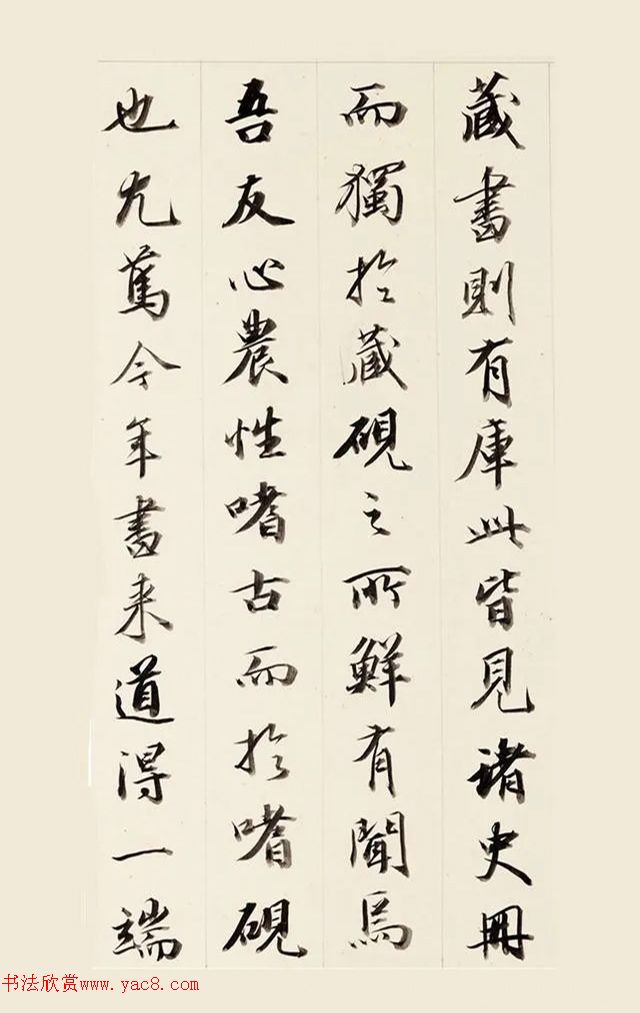 藏書則有庫此皆見諸史冊
而獨於藏硯之所鮮有聞焉
吾友心農性嗜古而於嗜硯
也尤篤今年書來道得一端
书法欣赏www.yac8.com